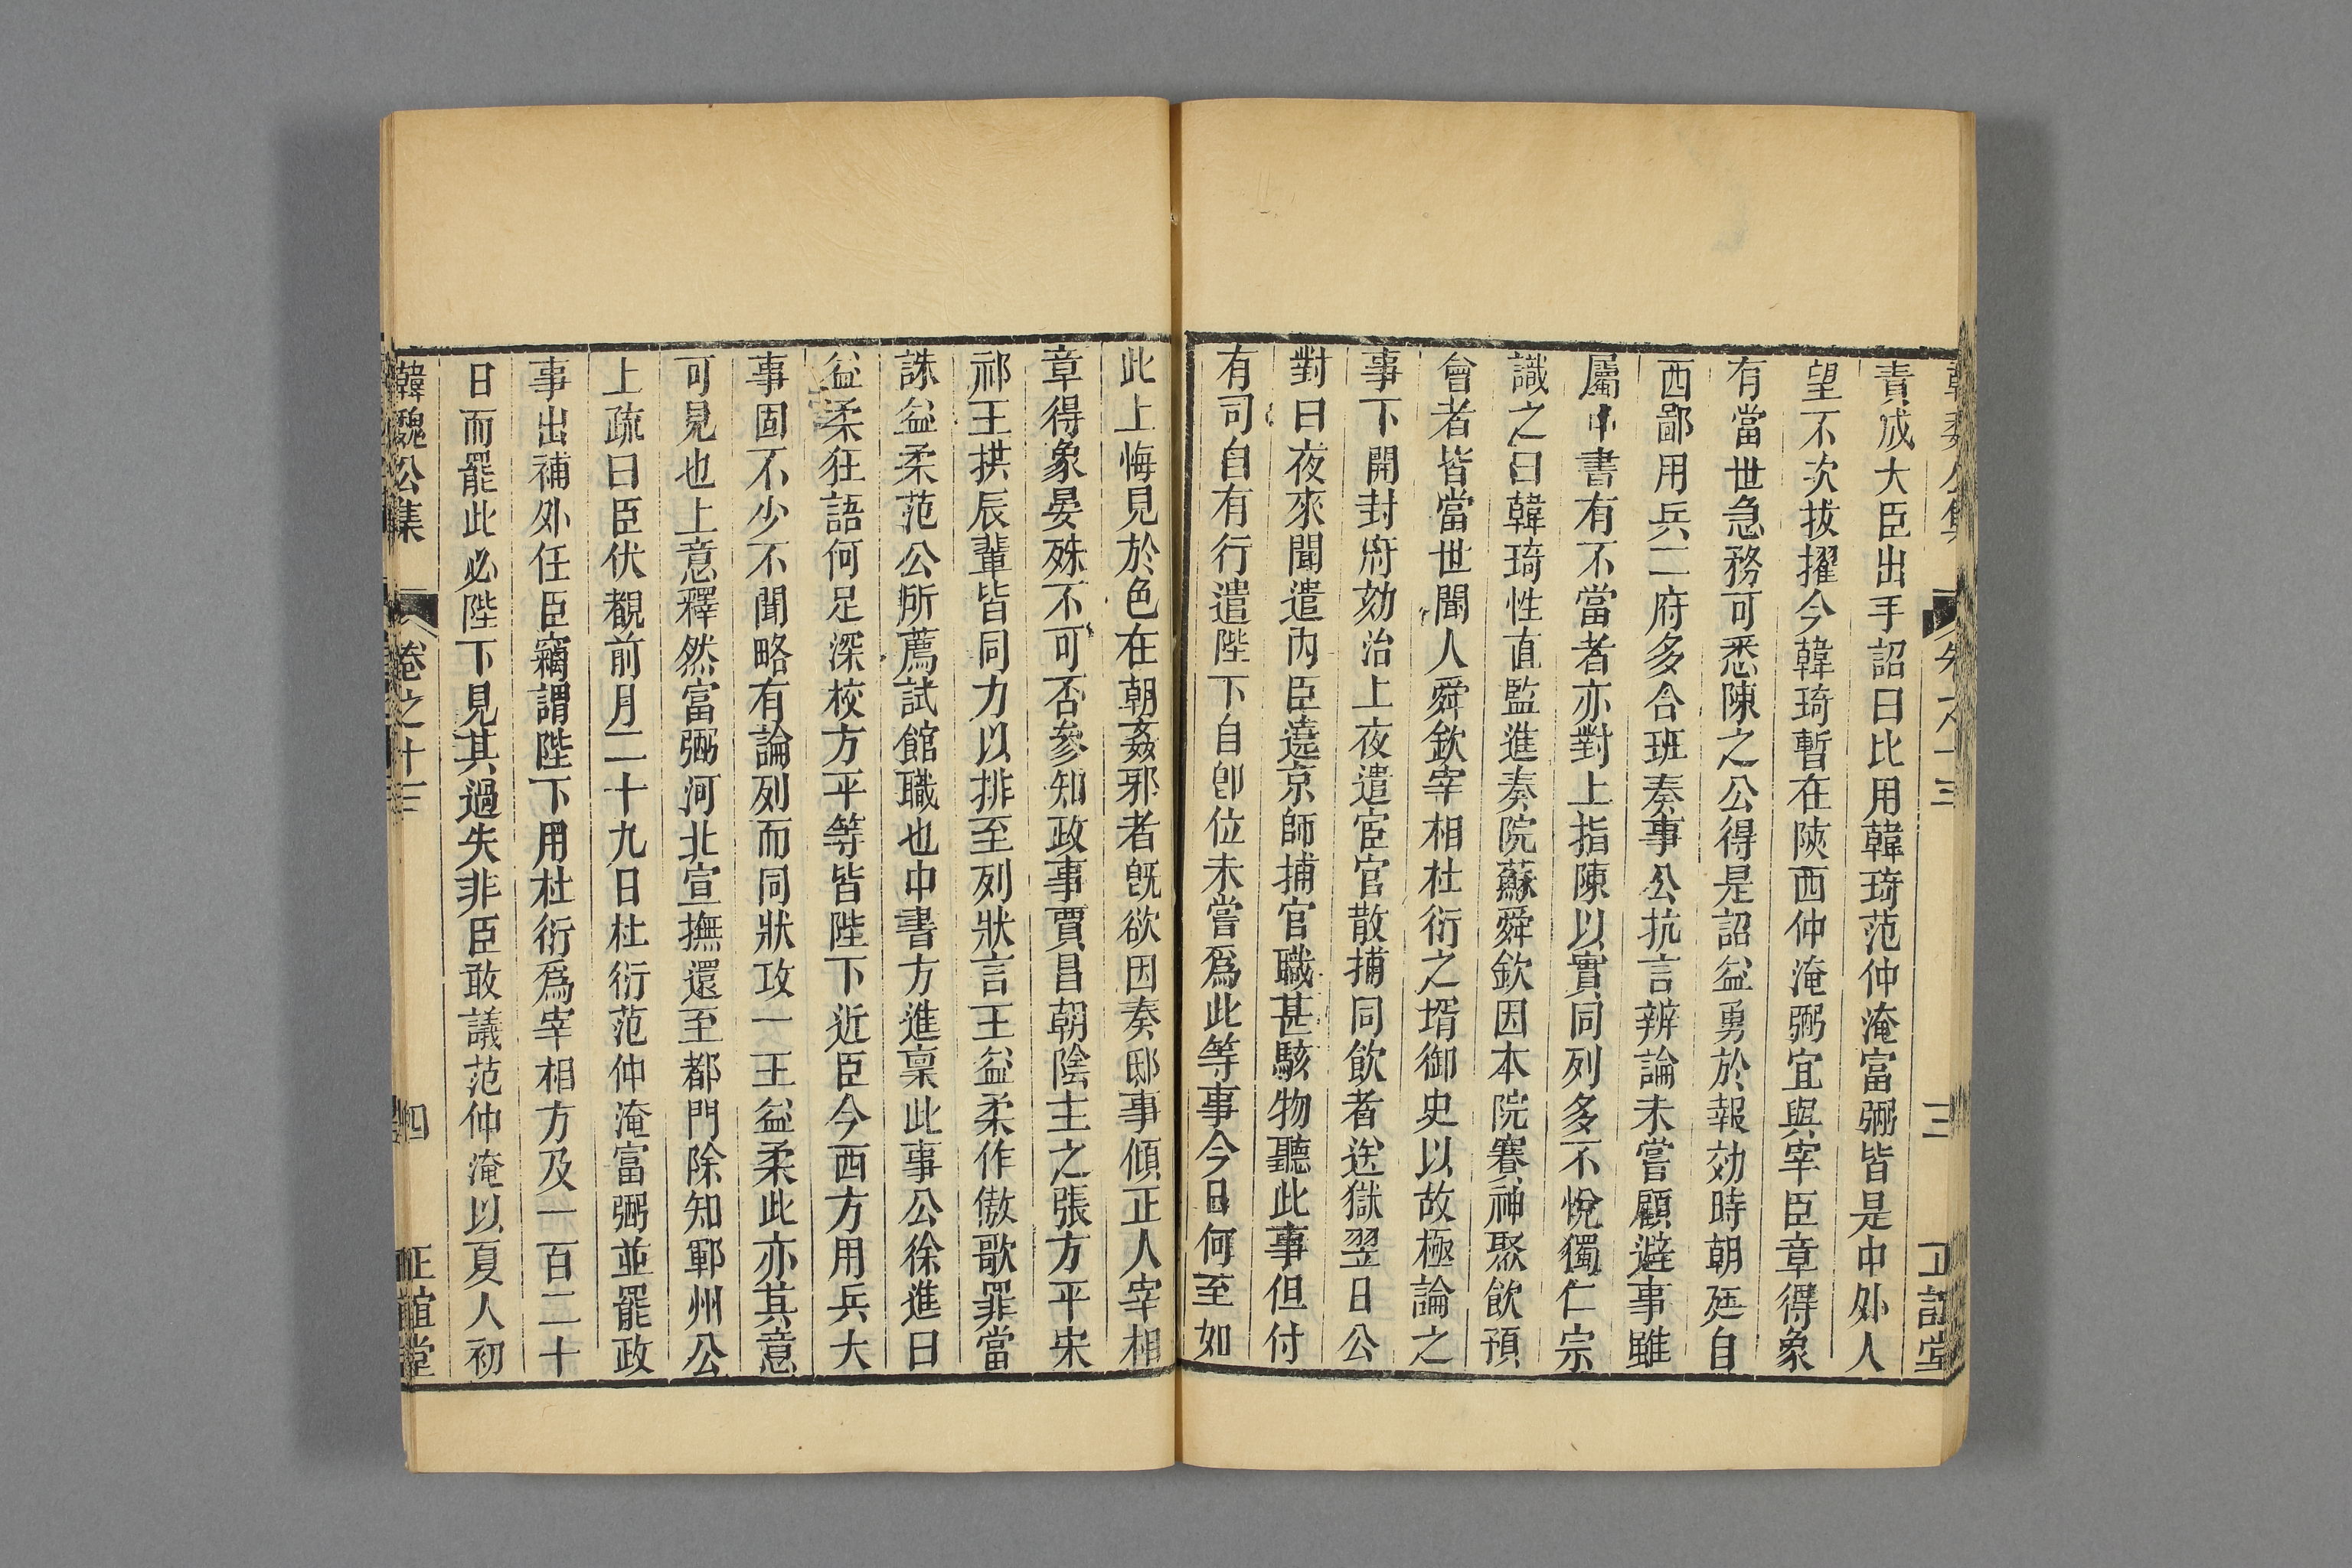 韓魏公集 卷之十三 三 正誼堂
責成大臣出手詔曰比用韓琦范仲淹富弼皆是中外人
望不次拔擢今韓琦暫在陝西仲淹弼宜與宰臣章得象
有當世急務可悉陳之公得是詔益勇於報効時朝廷自
西鄙用兵二府多合班奏事公抗言辨論未嘗顧避事雖
屬中書有不當者亦對上指陳以實同列多不悅獨仁宗
識之曰韓琦性直監進奏院蘇舜欽因本院賽神聚飲預
會者皆當世聞人舜欽宰相杜衍之壻御史以故極論之
事下開封府劾治上夜遣宦官散捕同飲者送獄翌日公
對曰夜來聞遣內臣遶京師捕官職甚駭物聽此事但付
有司自有行遣陛下自卽位未嘗爲此等事今日何至如
此上悔見於色在朝姦邪者旣欲因奏邸事傾正人宰相
章得象晏殊不可否參知政事賈昌朝陰主之張方平宋
祁王拱辰輩皆同力以排至列狀言王益柔作傲歌罪當
誅益柔范公所薦試館職也中書方進稟此事公徐進曰
益柔狂語何足深校方平等皆陛下近臣今西方用兵大
事固不少不聞略有論列而同狀攻一王益柔此亦其意
可見也上意釋然富弼河北宣撫還至都門除知鄆州公
上疏曰臣伏覩前月二十九日杜衍范仲淹富弼並罷政
事出補外任臣竊謂陛下用杜衍爲宰相方及一百二十
日而罷此必陛下見其過失非臣敢議范仲淹以夏人初
韓魏公集 卷之十三 四 正誼堂